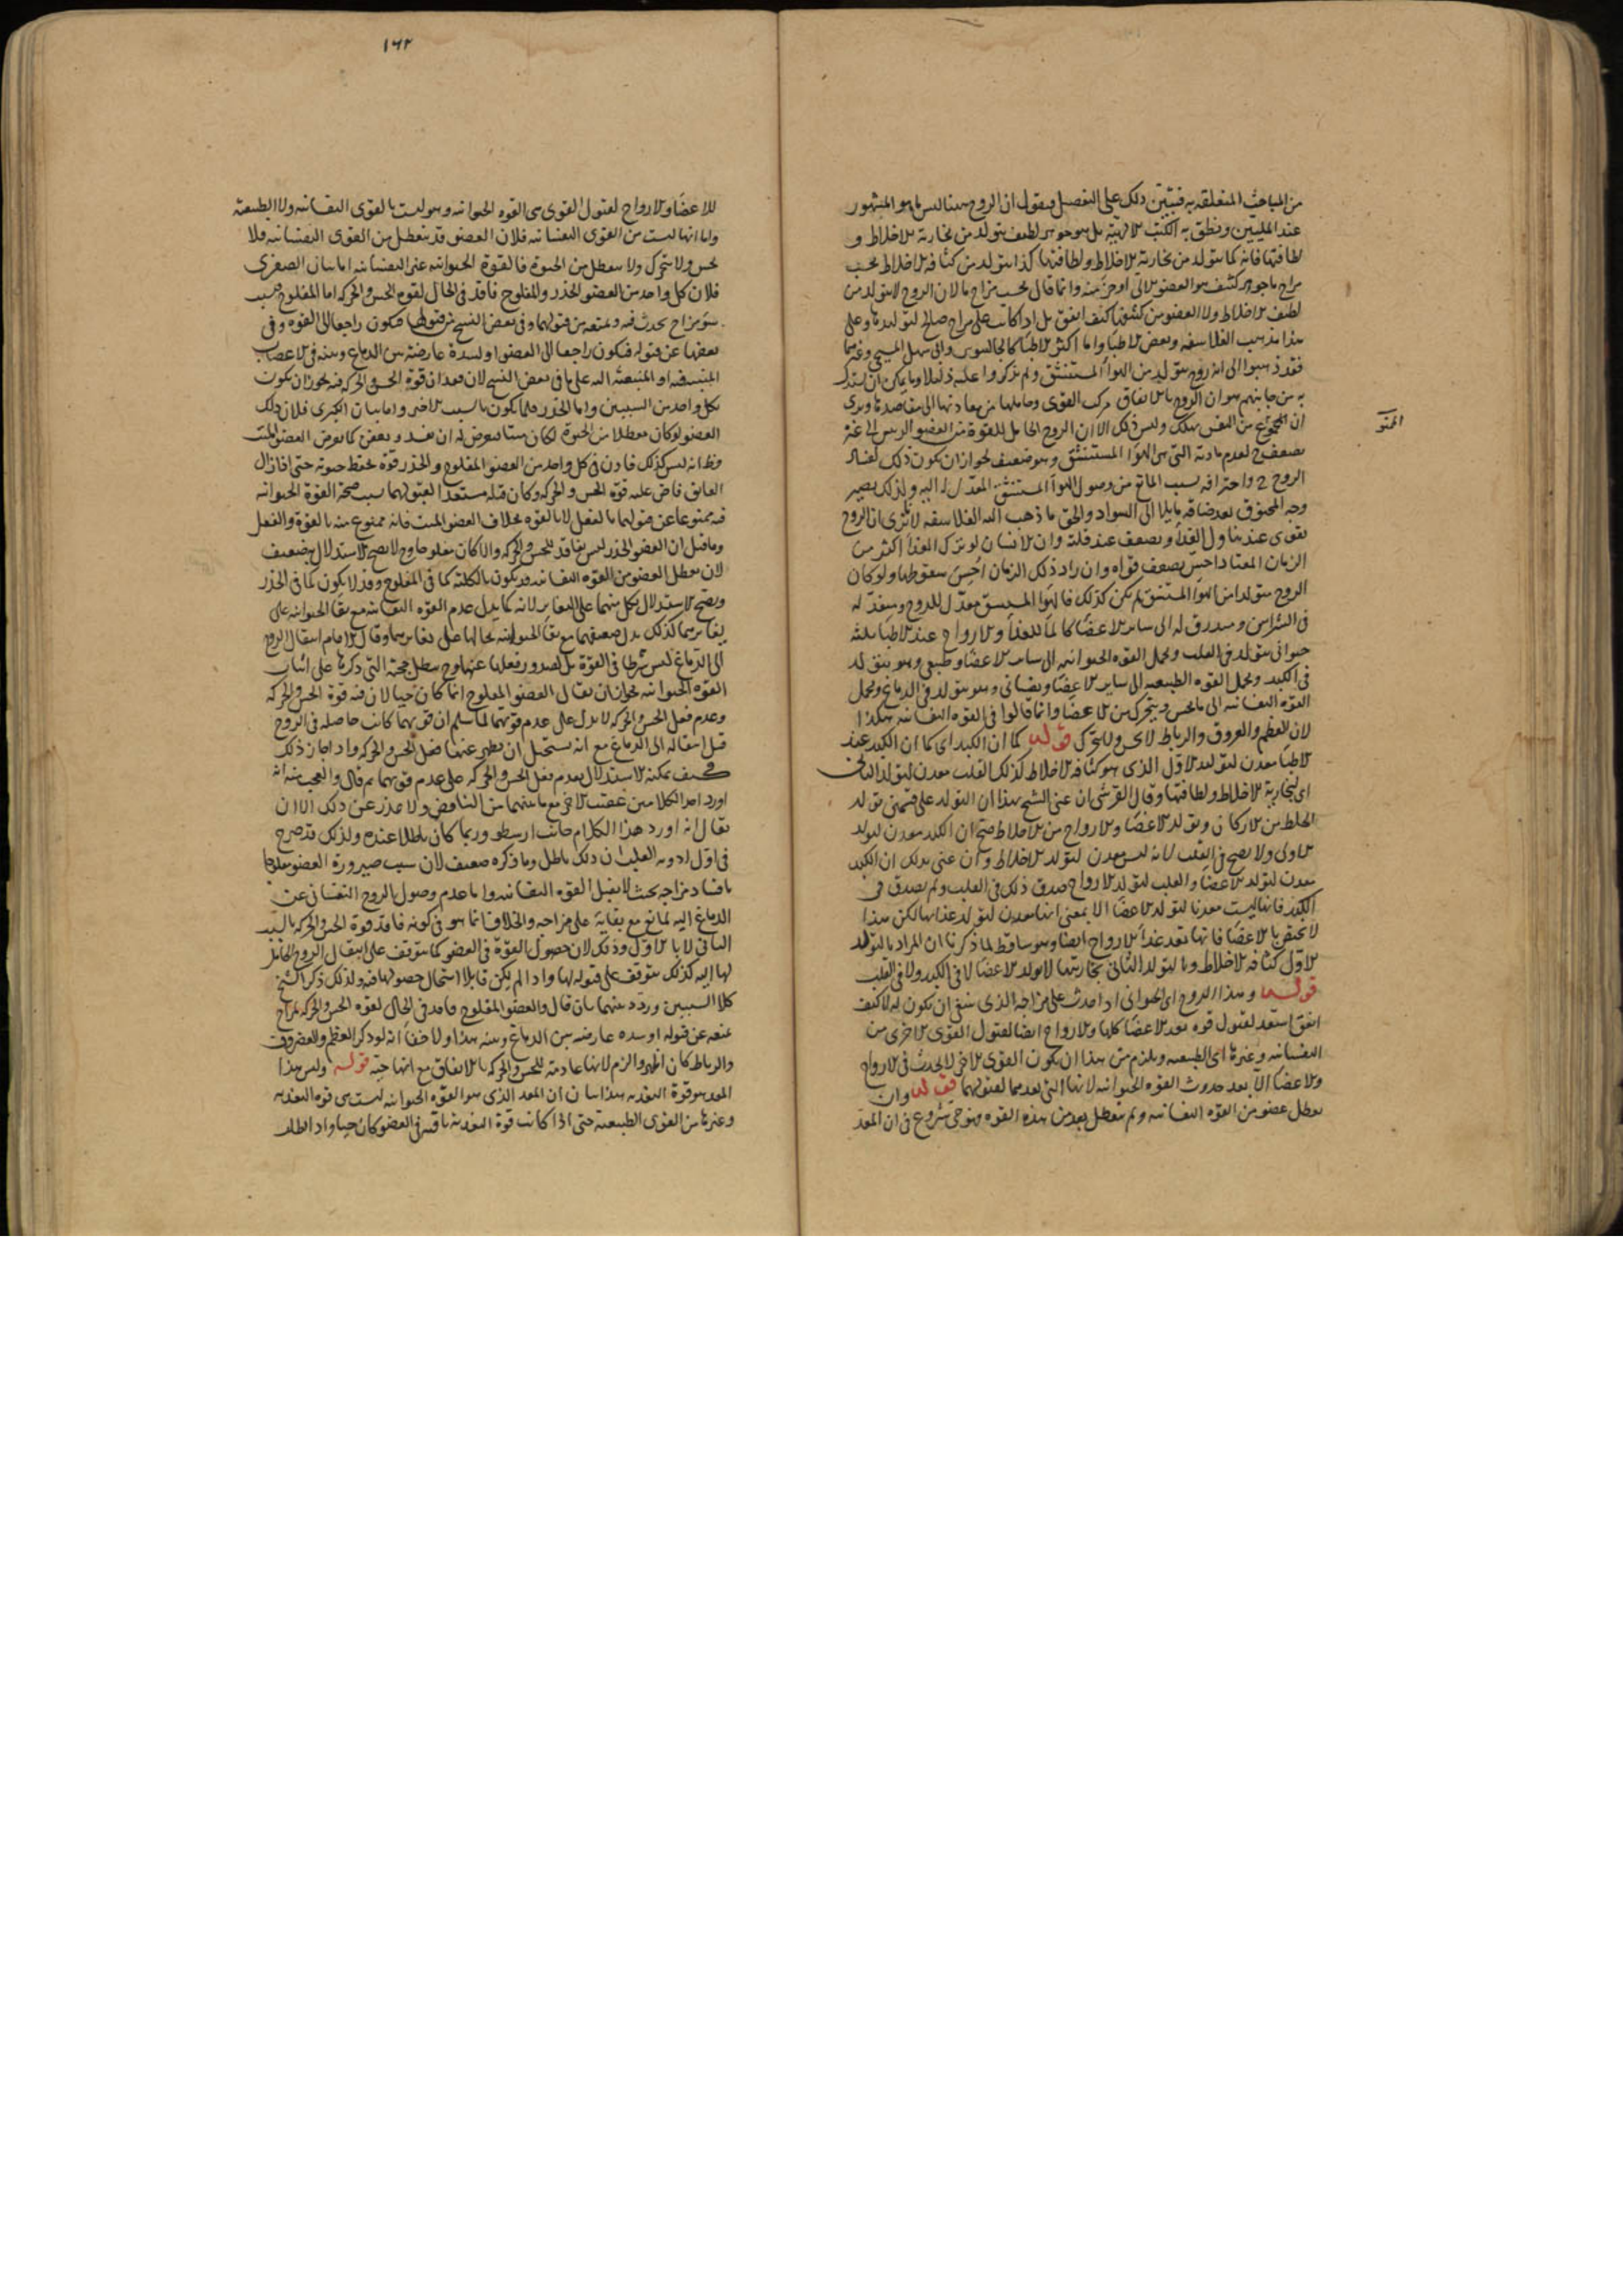 من المباحث المتعلقة به فنبين ذلك على التفصيل فنقول ان الروح ههنا ليس ما هو المشهور
عند المليين ونطق به الكتب الالهية بل هو جوهر لطيف يتولد من بخارية الاخلاط و
لطافتها فانه كما يتولد من بخارية الاخلاط ولطافتها كذا يتولد من كثافة الاخلاط بحسب
مزاج ما جوهر كثيف هو العضو الالى او جزء منه وانما قال بحسب مزاج ما لان الروح لا يتولد من
لطيف الاخلاط ولا العضو من كثيفها كيف اتفق بل اذا كانت على مزاج صالح لتوليدها وعلى
هذا مذهب الفلاسفة وبعض الاطباء واما اكثر الاطباء كالجالينوس وابى سهل المسيحى وغيرهما
فقد ذهبوا الى انه روح يتولد من الهواء المستنشق ولم يذكروا عليه دليلا وما يمكن ان يستدل
به من جانبهم هو ان الروح بالاتفاق مركب القوى وحاملها من معادنها الى مقاصدها ونرى
ان الممنوع من النفس يهلك وليس ذلك الا ان الروح الحامل للقوة من العضو الرئيس الى غيره
يضعف ح لعدم مادته التى هى الهواء المستنشق وهو ضعيف لجواز ان يكون ذلك لفساد
الروح ح واحتراقه بسبب المانع من وصول الهواء المستنشق المعدل له اليه ولذلك يصير
وجه المخنوق بعد صفائه مايلا الى السواد والحق ما ذهب اليه الفلاسفة الا ترى ان الروح
تقوى عند تناول الغذاء ويضعف عند قلته وان الانسان لو ترك الغذاء اكثر من
الزمان المعتاد احس بضعف قواه وان زاد ذلك الزمان احس بسقوطها ولو كان
الروح يتولد من الهواء المستنشق لم يكن كذلك فالهواء المستنشق معدل للروح ومنفذ له
فى الشرايين ومبدرق له الى ساير الاعضاء كالماء للغذاء والارواح عند الاطباء ثلثة
حيوانى يتولد فى القلب ويحمل القوة الحيوانية الى ساير الاعضاء وطبيعى وهو يتولد
فى الكبد ويحمل القوة الطبيعية الى ساير الاعضاء ونفسانى وهو يتولد فى الدماغ ويحمل
القوة النفسانية الى ما يحس ويتحرك من الاعضاء وانما قالوا فى القوة النفسانية هكذا
لان العظم والعروق والرباط لا يحس ولا يتحرك قوله كما ان الكبد اى كما ان الكبد عند
الاطباء معدن لتولد الاول الذى هو كثافة الاخلاط كذلك القلب معدن لتولد الثانى
اى بخارية الاخلاط ولطافتها وقال القرشى ان عنى الشيخ بهذا ان التولد على قسمين تولد
الخلط من الاركان وتولد الاعضاء والارواح من الاخلاط صح ان الكبد معدن لتولد
الاولى ولا يصح فى القلب لانه ليس معدن لتولد الاخلاط وان عنى بذلك ان الكبد
معدن لتولد الاعضاء والقلب لتولد الارواح صدق ذلك فى القلب ولم يصدق فى
الكبد فانها ليست معدنا لتولد الاعضاء الا بمعنى انها معدن لتولد غذائها لكن هذا
لا يختص بالاعضاء فانها تعد غذاء الارواح ايضا وهو ساقط لما ذكرنا ان المراد بالتولد
الاول كثافة الاخلاط وبالتولد الثانى بخاريتها لا تولد الاعضاء لا فى الكبد ولا فى القلب
قوله وهذا الروح اى الحيوانى اذا حدث على مزاجه الذى ينبغى ان يكون له لا كيف
اتفق استعد لقبول قوة يعد الاعضاء كلها والارواح ايضا لقبول القوى الاخرى من
النفسانية وغيرها اى الطبيعية ويلزم من هذا ان يكون القوى الاخرى لا يحدث فى الارواح
والاعضاء الا بعد حدوث القوة الحيوانية لانها التى يعدهما لقبولهما قوله وان
تعطل عضو من القوة النفسانية ولم يتعطل بعد من هذه القوة فهو حى شروع فى ان المعد
١٦٢
للاعضاء والارواح لقبول القوى هى القوة الحيوانية وهو ليست بالقوى النفسانية ولا الطبيعية
واما انها ليست من القوى النفسانية فلان العضو قد يتعطل من القوى النفسانية فلا
يحس ولا يتحرك ولا يتعطل من الحيوة فالقوة الحيوانية غير النفسانية اما بيان الصغرى
فلان كل واحد من العضو الخدر والمفلوج فاقد فى الحال لقوة الحس والحركة اما المفلوج فبسبب
سوء مزاج يحدث فيه ويمنعه من قبولهما وفى بعض النسخ من قبولها فيكون راجعا الى القوة وفى
بعضها عن قبوله فيكون راجعا الى العضو او لسدة عارضة بين الدماغ وبينه فى الاعصاب
المنبثة فيه او المنبعثة اليه على ما فى بعض النسخ لان فقدان قوة الحس والحركة منه يجوز ان يكون
بكل واحد من السببين واما الخدر فلما يكون بالسبب الاخير واما بيان الكبرى فلان ذلك
العضو لو كان معطلا من الحيوة لكان ميتا فيعرض له ان يفسد ويعفن كما يعرض العضو الميت
وظ انه ليس كذلك فاذن فى كل واحد من العضو المفلوج والخدر قوة تحفظ حيوته حتى اذا زال
العايق فاض عليه قوة الحس والحركة وكان قبله مستعدا لقبولهما بسبب صحة القوة الحيوانية
فيه ممنوعا عن قبولهما بالفعل لا بالقوة بخلاف العضو الميت فانه ممنوع منه بالقوة والفعل
وما قيل ان العضو الخدر ليس بفاقد للحس والحركة والا كان مفلوجا وح لا يصح الاستدلال به ضعيف
لان تعطل العضو من القوة النفسانية قد يكون بالكلية كما فى المفلوج وقد لا يكون كما فى الخدر
ويصح الاستدلال بكل منهما على التغاير لانه كما يدل عدم القوة النفسانية مع بقاء الحيوانية على
تغايرهما كذلك يدل ضعفهما مع بقاء الحيوانية بحالها على تغايرهما وقال الامام انتقال الروح
الى الدماغ ليس شرطا فى القوة بل لصدور فعلها عنها وح يبطل حجته التى ذكرها على اثبات
القوة الحيوانية لجواز ان يقال العضو المفلوج انما كان حيا لان فيه قوة الحس والحركة
وعدم فعل الحس والحركة لا يدل على عدم قوتهما لما سلم ان قوتهما كانت حاصلة فى الروح
قبل انتقاله الى الدماغ مع انه يستحيل ان يظهر عنهما فعل الحس والحركة واذا جاز ذلك
فكيف يمكنه الاستدلال بعدم فعل الحس والحركة على عدم قوتهما ثم قال والعجب منه انه
اورد احد الكلامين عقيب الاخر مع ما بينهما من التناقض ولا عذر عن ذلك الا ان
يقال انه اورد هذا الكلام من جانب ارسطو وربما كان باطلا عنده ولذلك قد صرح
فى اول ادوية القلب ان ذلك باطل وما ذكره ضعيف لان سبب صيرورة العضو مفلوجا
اما فساد مزاجه بحيث لا يقبل القوة النفسانية واما عدم وصول الروح النفسانى عن
الدماغ اليه لمانع مع بقائه على مزاجه والخلاف انما هو فى كونه فاقد قوة الحس والحركة بالسبب
الثانى لا بالاول وذلك لان حصول القوة فى العضو كما يتوقف على انتقال الروح الحامل
لها اليه كذلك يتوقف على قبوله لها واذا لم يكن قابلا استحال حصولها فيه ولذلك ذكر الشيخ
كلا السببين وردد بينهما بان قال والعضو المفلوج فاقد فى الحال لقوة الحس والحركة لمزاج
يمنعه عن قبوله او سدة عارضة بين الدماغ وبينه هذا ولا خفاء انه لو ذكر العظم والغضروف
والرباط كان اظهر والزم لانها عادمة للحس والحركة بالاتفاق مع انها حية قوله وليس هذا
المعد هو قوة التغذية هذا بيان ان المعد الذى هو القوة الحيوانية ليست هى قوة التغذية
وغيرها من القوى الطبيعية حتى اذا كانت قوة التغذية باقية فى العضو كان حيا واذا بطلت